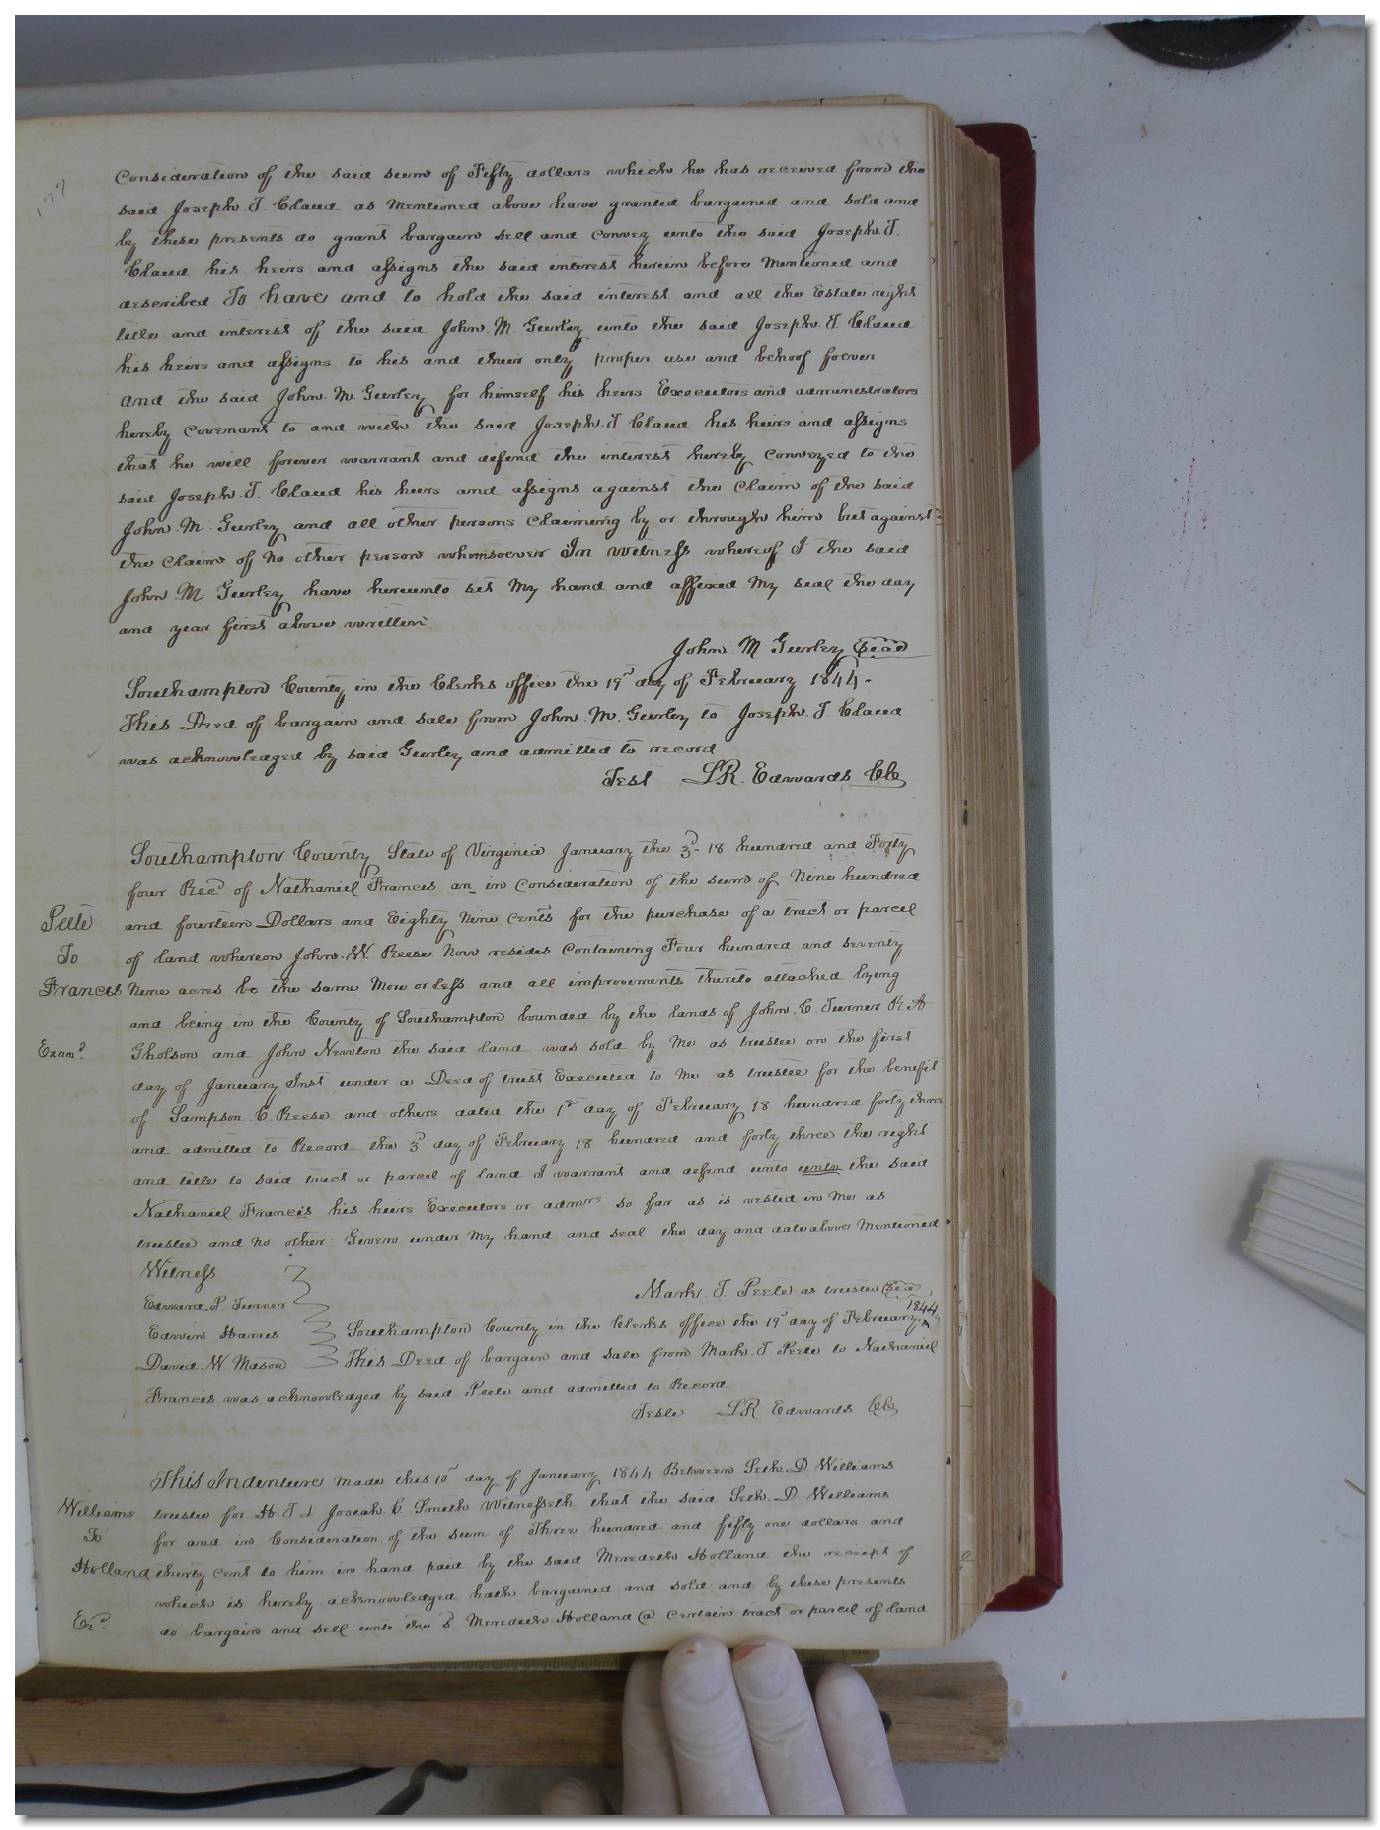 Consideration of the said sum of Fifty dollars which he has received from the
said Joseph. T. Claud as Mentioned above have granted bargained and sold and
by these presents do grant bargain sell and Convey unto the said Joseph T.
Claud his heirs and assigns the said interest herein before Mentioned and
described To have and to hold the said interest and all the Estate right
title and interest of the said John. M. Gurley unto the said Joseph. T. Claud
his heirs and assigns to his and their only proper use and behoof forever
and the said John. M. Gurley for himself his heirs Executors and administrators
hereby Covenant to and with the said Joseph. T Claud his heirs and assigns
that he will forever warrant and defend the interest hereby Conveyed to the
said Joseph. T. Claud his heirs and assigns against the Claim of the said
John. M. Gurley and all other persons Claiming by or through him but against
the Claim of No other person whomsoever In witness whereof I the said
John. M Gurley have hereunto set My hand and affixed My seal the day
and year first above written
John. M Gurley Seal
Southampton County in the Clerks office the 19th day of February 1844.
This Deed of bargain and sale from John. M. Gurley to Joseph. T. Claud
was acknowledged by said Gurley and admitted to record
Test LR. Edwards CC
Southampton County State of Virginia January the 3d 18 hundred and Forty
four Recd of Nathaniel Francis an in Consideration of the sum of Nine hundred
Peete and fourteen Dollars and Eighty Nine Cents for the purchase of a tract or parcel
To of land whereon John. W. Reese Now resides Containing Four hundred and seventy
Francis Nine acres be the same More or less and all improvements thereto attached lying
and being in the County of Southampton bounded by the lands of John. C Turner R A
Examd Gholson and John Newton the said land was sold by Me as trustee on the first
day of January Inst under a Deed of trust Executed to Me as trustee for the benefit
of Sampson. C. Reese and others dated the 1st day of February 18 hundred forty three
and admitted to Record the 3d day of February 18 hundred and forty three the right
and title to said tract or parcel of land I warrant and defend unto unto the said
Nathaniel Francis his heirs Executors or admrs so far as is vested in Me as
trustee and No other. Given under My hand and seal the day and date above Mentioned
Witness
Mark. T. Peete as trustee Seal
Edward. P. Turner
Edwin Harris Southampton County in the Clerks office the 19th day of February 1844
David. W Mason This Deed of bargain and sale from Mark. T Peete to Nathaniel
Francis was acknowledged by said Peete and admitted to Record
Teste LR Edwards CC
This Indenture made this 10th day of January 1844 Between Seth. D Williams
Williams trustee for H T & Josiah. C Smith Witnesseth that the said Seth. D Williams
To for and in Consideration of the sum of Three hundred and fifty one dollars and
Holland thirty Cent to him in hand paid by the said Meredith Holland the receipt of
which is hereby acknowledged hath bargained and sold and by these presents
Exd do bargain and sell unto the sd Meredith Holland a Certain tract or parcel of land